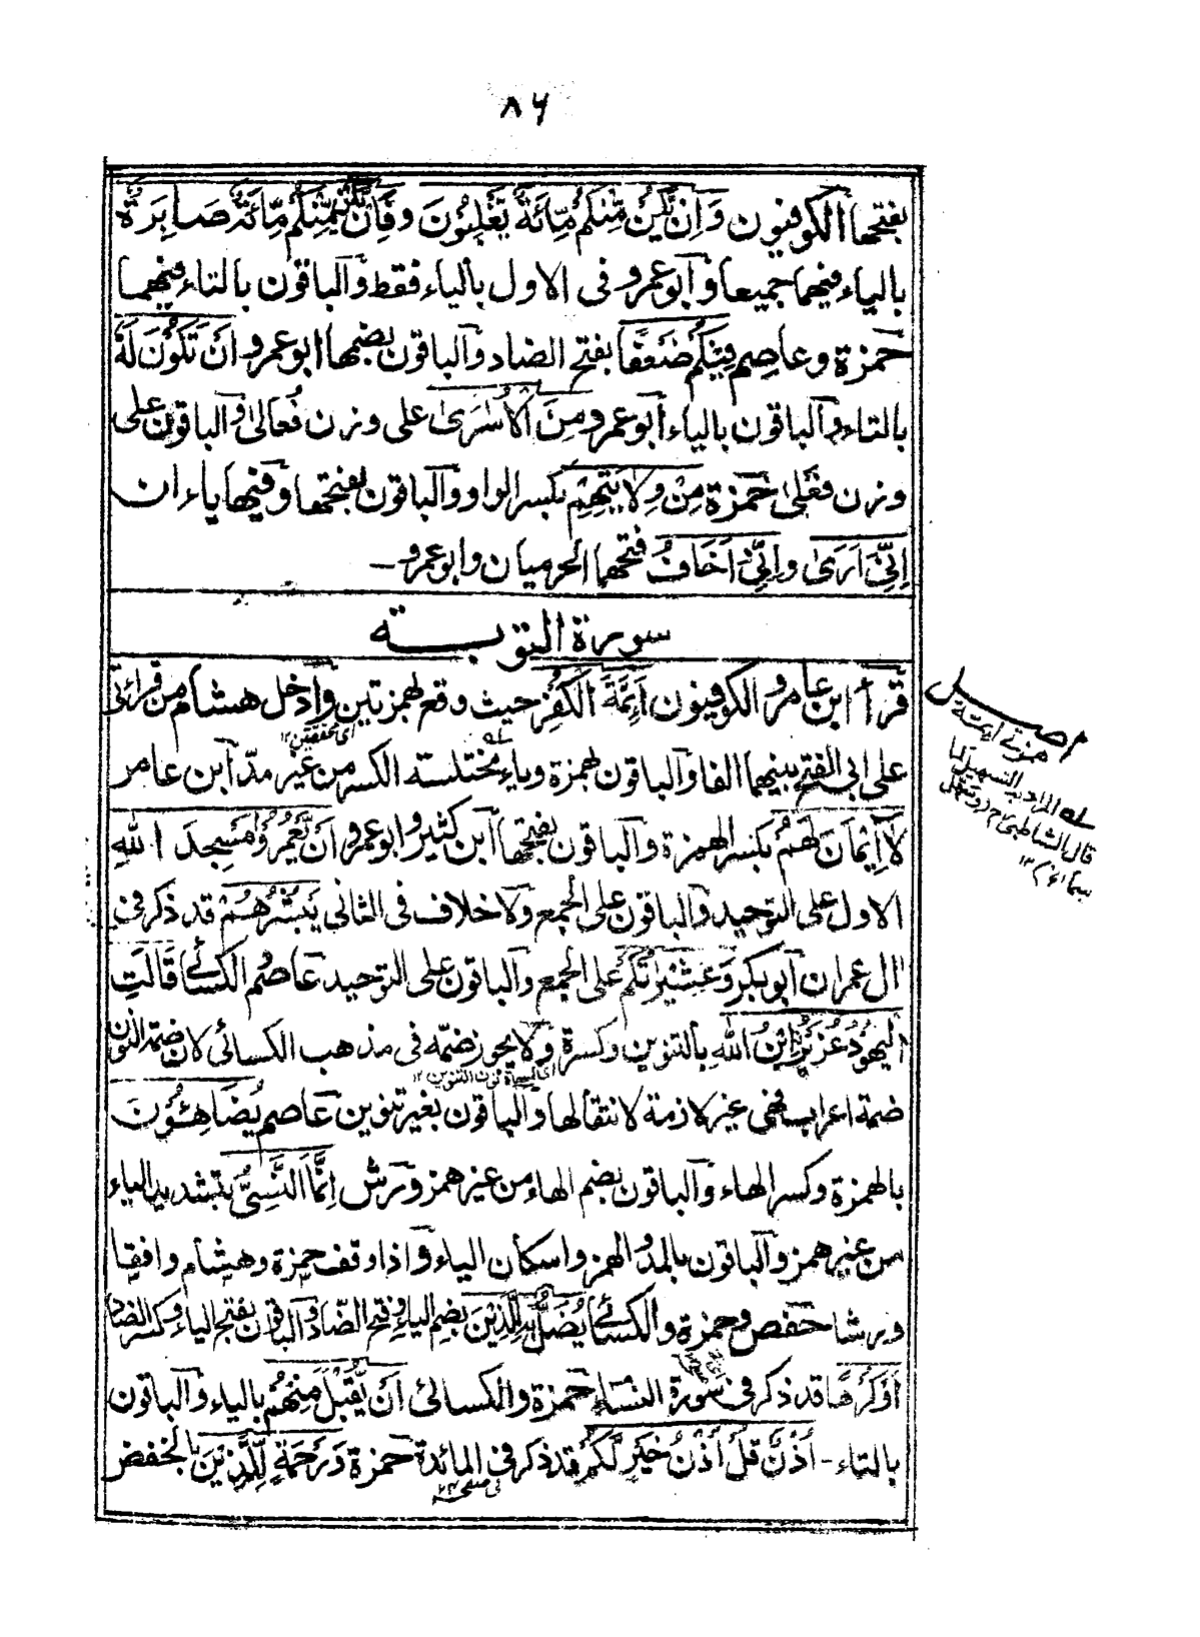 ٨٦
بفتحها الكوفيون وَاِنْ يَّكُنْ مِّنْكُمْ مِّائَةٌ يَّغْلِبُوْنَ وفَاِنْ يَّكُنْ مِّنْكُمْ مِّائَةٌ صَابِرَةٌ
بالياء فيهما جميعا وابو عمرو فى الاول بالياء فقط والباقون بالتاء فيهما
حمزة وعاصم فِيْكُمْ ضَعْفًا بفتح الضاد والباقون بضمها ابو عمرو اَنْ تَكُوْنَ لَهٗ
بالتاء والباقون بالياء ابو عمرو مِنَ الْاُسٰرٰى على وزن فُعالىٰ والباقون على
وزن فَعْلىٰ حمزة مِنْ وِلَايَتِهِمْ بكسر الواو والباقون بفتحها وفيها ياءان
اِنِّىْ اَرَىٰ واِنِّىْ اَخَافُ فتحهما الحرميان وابو عمرو —
سورة التوبة
قرأ ابن عامر والكوفيون اَئِمَّةَ الْكُفْرِ حيث وقع بهمزتين وادخل هشام من قرائتى
اى محققتين ١٢
على ابى الفتح بينهما الفا والباقون بهمزة وياء مختلسة الكسر من غير مدّ ابن عامر
لَا اِيْمَانَ لَهُمْ بكسر الهمزة والباقون بفتحها ابن كثير وابو عمرو اَنْ يَّعْمُرُوْا مَسْجِدَ اللهِ
الاول على التوحيد والباقون على الجمع ولا خلاف فى الثانى يُبَشِّرُهُمْ قد ذكر فى
ال عمران ابو بكر وَعَشِيْرَاتُكُمْ على الجمع والباقون على التوحيد عاصم والكسائى قَالَتِ
الْيَهُوْدُ عُزَيْرُ ابْنُ اللهِ بالتنوين وكسرة ولا يجوز ضمّه فى مذهب الكسائى لان ضمة النون
ضمة اعراب فهى غير لازمة لانتقالها والباقون بغير تنوين عاصم يُضَاهِئُوْنَ
بالهمزة وكسر الهاء والباقون بضم الهاء من غير همز ورش اِنَّمَا النَّسِىُّ بتشديد الياء
من غير همز والباقون بالمد والهمز واسكان الياء واذا وقف حمزة وهشام وافقا
ورشا حفص وحمزة والكسائى يُضَلُّ بِهِ الَّذِيْنَ بضم الياء وفتح الضاد والباقون بفتح الياء وكسر الضاد
اَوْ كَرْهًا قد ذكر فى سورة النساء حمزة والكسائى اَنْ يُّقْبَلَ مِنْهُمْ بالياء والباقون
بالتاء — اُذُنٌ قُلْ اُذُنُ خَيْرٍ لَّكُمْ قد ذكر فى المائدة حمزة وَرَحْمَةٍ لِّلَّذِيْنَ بالخفض
اصل
همزتے ايمة
المراد به التسهيل كما
قال الشاطبى وسهل
سما ١٢